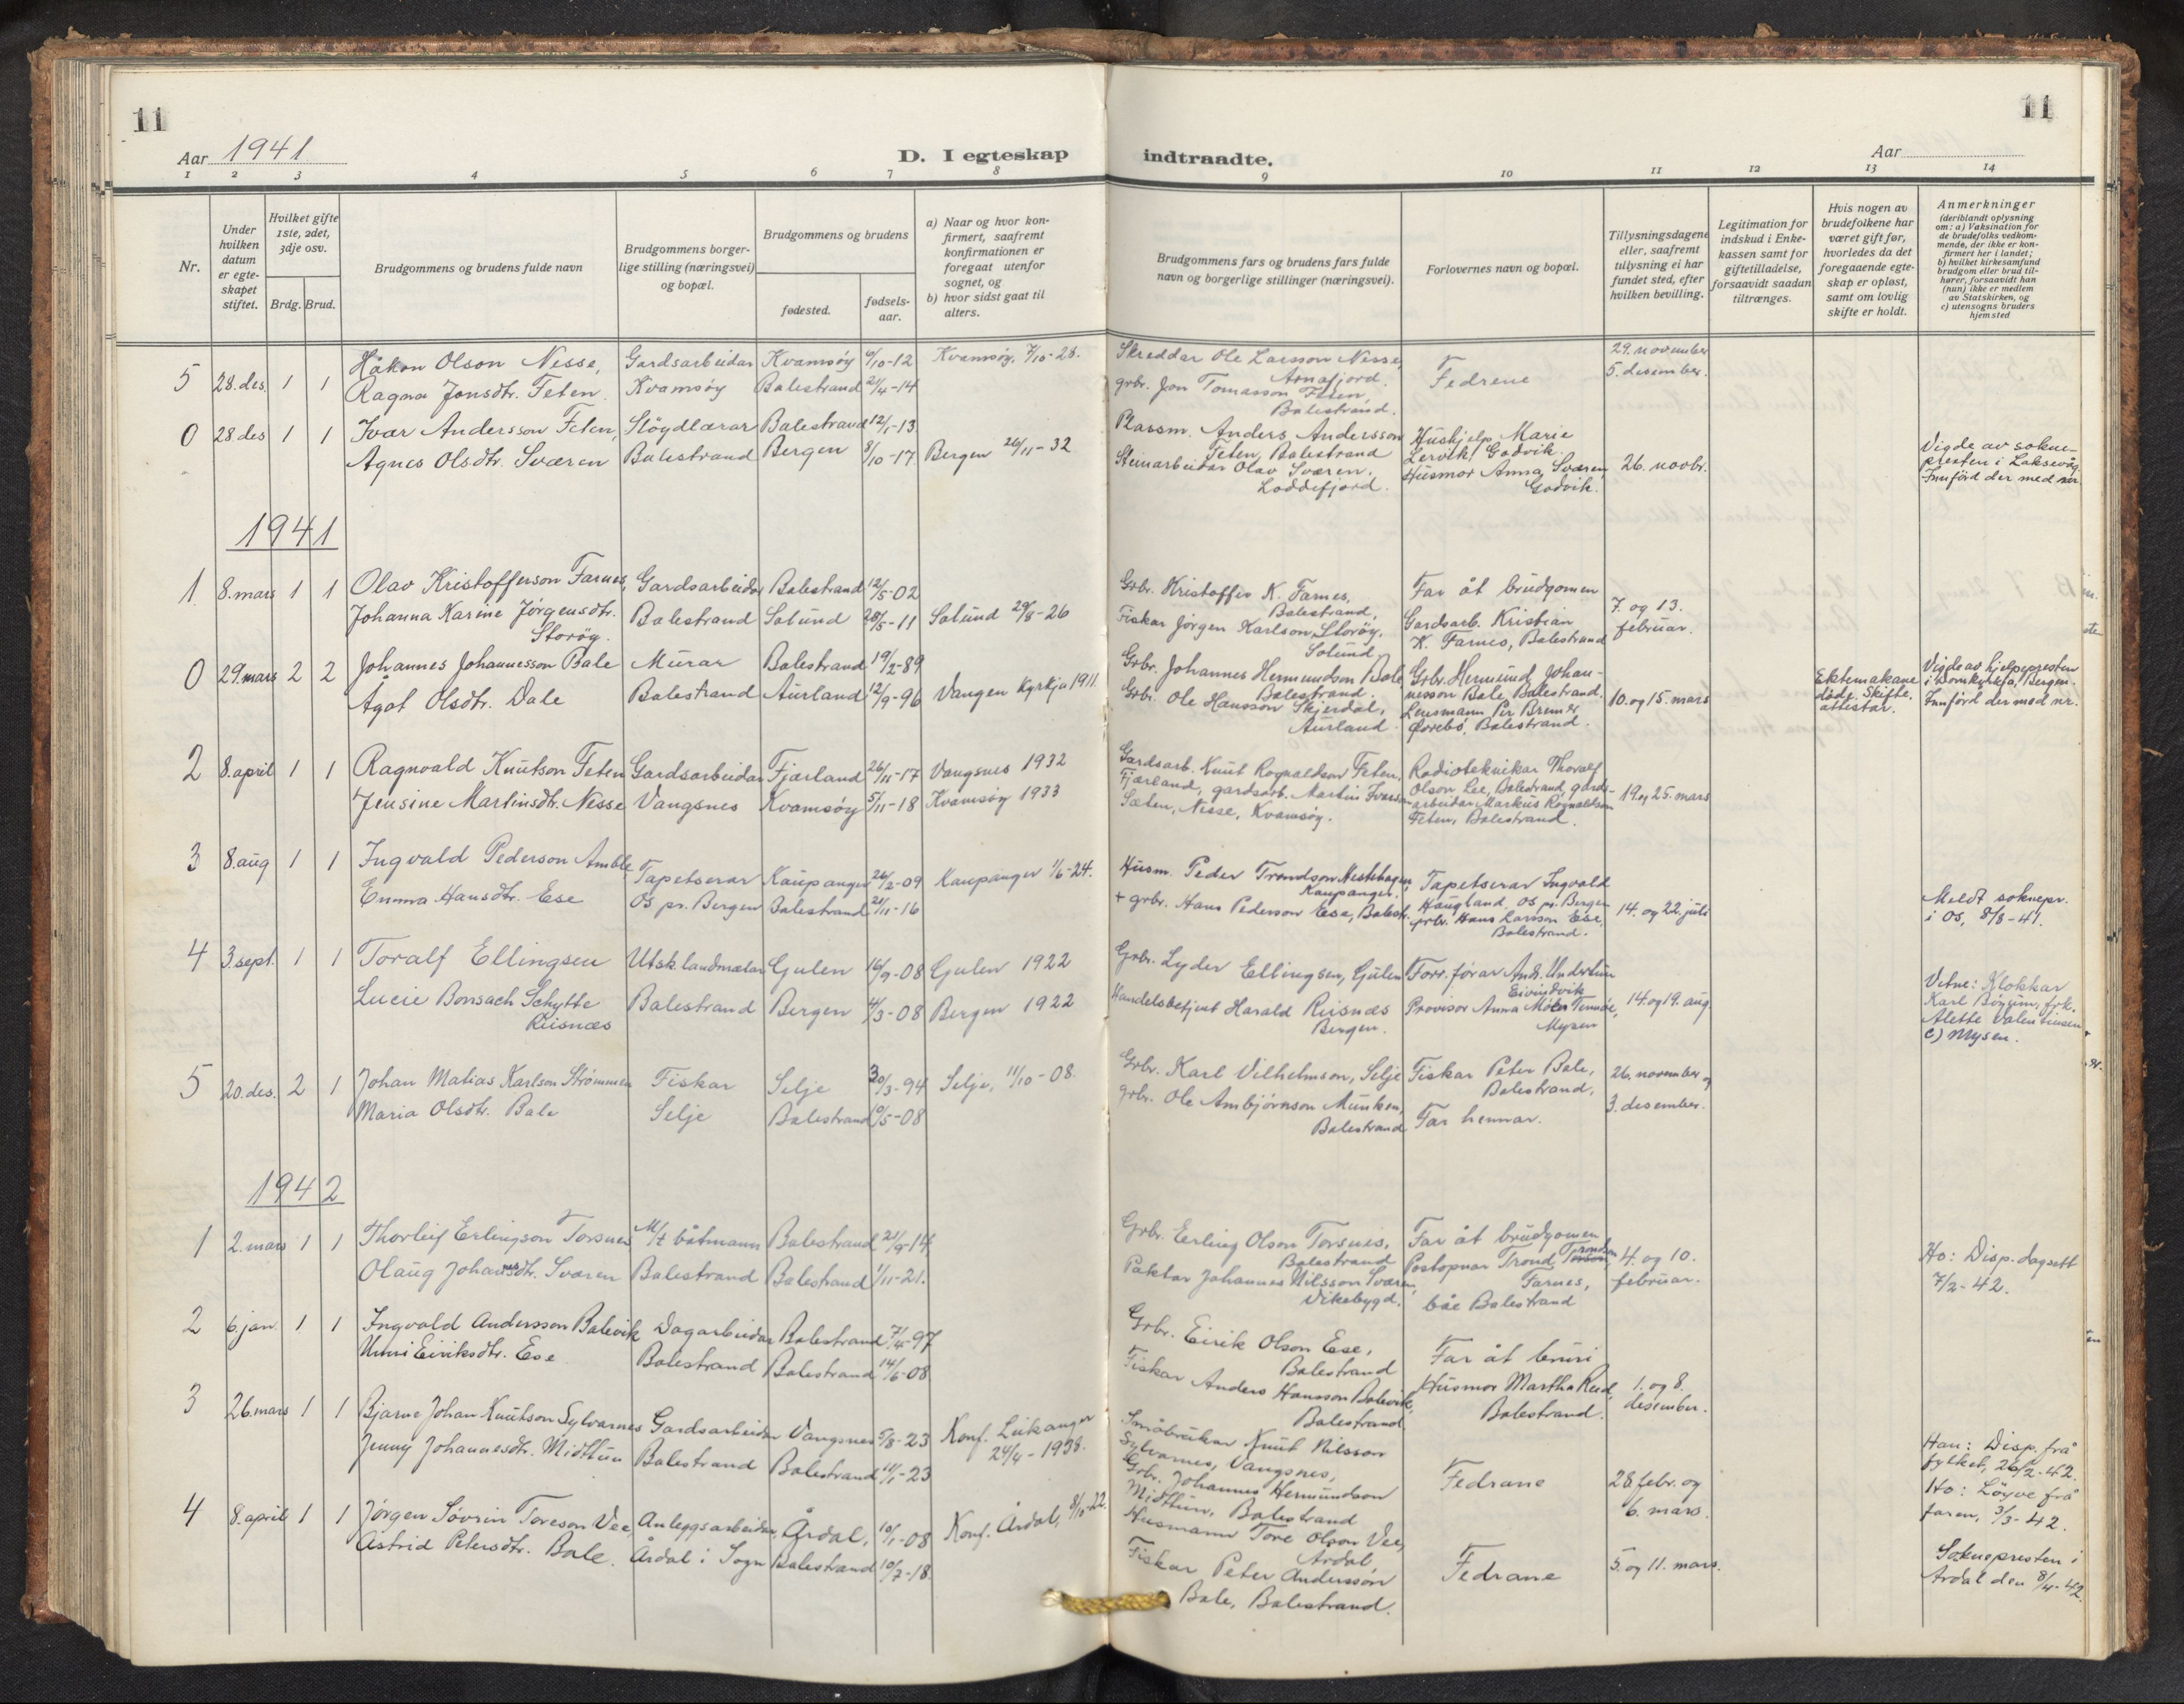 11
11
Aar 1941
D. I egteskap indtraadte.
Aar
1 2 3 4 5 6 7 8 9 10 11 12 13 14
Nr.
Under hvilken datum er egteskapet stiftet.
Hvilket gifte 1ste, 2det, 3dje osv.
Brdg. Brud.
Brudgommens og brudens fulde navn
Brudgommens borgerlige stilling (næringsvei) og bopæl.
Brudgommens og brudens
fødested.
fødselsaar.
a) Naar og hvor konfirmert, saafremt konfirmationen er foregaat utenfor sognet, og
b) hvor sidst gaat til alters.
Brudgommens fars og brudens fars fulde navn og borgerlige stillinger (næringsvei).
Forlovernes navn og bopæl.
Tillysningsdagene eller, saafremt tillysning ei har fundet sted, efter hvilken bevilling.
Legitimation for indskud i Enkekassen samt for giftetilladelse, forsaavidt saadan tiltrænges.
Hvis nogen av brudefolkene har været gift før, hvorledes da det foregaaende egteskap er opløst, samt om lovlig skifte er holdt.
Anmerkninger
(deriblandt oplysning om: a) Vaksination for de brudefolks vedkommende, der ikke er konfirmert her i landet;
b) hvilket kirkesamfund brudgom eller brud tilhører, forsaavidt han (hun) ikke er medlem av Statskirken, og
c) utensogns bruders hjemsted
5 28. des. 1 1 Håkon Olson Nesse, Gardsarbeidar Kvamsøy 6/10-12 Kvamsøy, 7/10-28. Skreddar Ole Larsson Nesse, Arnafjord. Fedrene 29. november
Ragna Jonsdtr. Feten. Kvamsøy Balestrand 21/4-14 grbr. Jon Tomasson Feten, Balestrand. 5. desember.
0 28. des 1 1 Ivar Andersson Feten, Sløydlærar Balestrand 12/1-13 Plassm. Anders Andersson Feten, Balestrand Hushjelp Marie Lervik, Godvik. 26. novbr.
Agnes Olsdtr. Sværen Balestrand Bergen 8/10-17 Bergen 26/11-32 Steinarbeidar Olav Sværen, Loddefjord. Husmor Anna Sværen, Godvik. Vigde av soknepresten i Laksevåg. Innförd der med nr.
1941
1. 8. mars 1 1 Olav Kristofferson Farnes, Gardsarbeidar Balestrand 12/5-02 Grbr. Kristoffer K. Farnes, Balestrand, Far åt brudgomen 7. og 13. februar.
Johanna Karine Jørgensdtr. Storøy. Balestrand Solund 28/5-11 Solund 29/8-26 Fiskar Jørgen Karlson, Storøy, Solund. Gardsarb. Kristian K. Farnes, Balestrand
0 29. mars 2 2 Johannes Johannesson Bale Murar Balestrand 19/2-89 Grbr. Johannes Hermundson Bale Balestrand. Grbr. Hermund Johannesson Bale, Balestrand. 10. og 15. mars
Ågot Olsdtr. Dale Balestrand Aurland 12/9-96 Vangen Kyrkja 1911. Grbr. Ole Hansson Skjerdal, Aurland. Lensmann Per Bremer Øvrebø, Balestrand. Ektemakane døde. Skifteattestar. Vigde av hjelpepresten i Domkyrkja, Bergen. Innförd der med nr.
2 8. april 1 1 Ragnvald Knutson Feten Gardsarbeidar Fjærland 26/11-17 Vangsnes 1932 Gardsarb. Knut Rognaldson Feten, Fjærland, gardsarb. Martin Ivarson Sæten, Nesse, Kvamsøy. Radioteknikar Thoralf Olson Lee, Balestrand, gardsarbeidar Markus Rognaldson Feten, Balestrand. 19. og 25. mars
Jensine Martinsdtr. Nesse Vangsnes Kvamsøy 5/11-18 Kvamsøy 1933
3 8. aug 1 1 Ingvald Pederson Amble, Tapetserar Kaupanger 26/2-09 Kaupanger 1/6-24. Husm. Peder Trondson Nestehagen, Kaupanger. Tapetserar Ingvald Haugland, Os pr. Bergen 14. og 22. juli
Emma Hansdtr. Ese Os pr. Bergen Balestrand 21/11-16 + grbr. Hans Pederson Ese, Balestr. grbr. Hans Larsson Ese, Balestrand. Meldt soknepr. i Os, 8/8-41.
4 3. sept. 1 1 Toralf Ellingsen Utsk.landmælar Gulen 16/9-08 Gulen 1922 Grbr. Lyder Ellingsen, Gulen Forr.førar And. Undertun Eivindvik 14. og 19. aug.
Lucie Bonsach Schytte Riisnæs Balestrand Bergen 4/3-08 Bergen 1922 Handelsbetjent Harald Riisnæs Bergen. Provisor Anna Moen Tennøe, Mysen Vitne: Klokkar Karl Bøyum, frk. Alette Valentinsen c) Mysen.
5 20. des. 2 1 Johan Matias Karlson Strømmen Fiskar Selje 30/3-94 Selje, 11/10-08. Grbr. Karl Vilhelmson, Selje Fiskar Peter Bale, Balestrand, 26. november og
Maria Olsdtr. Bale Selje Balestrand 10/5-08 grbr. Ole Ambjörnson Munken, Balestrand Far hennar. 3. desember.
1942
1 2. mars 1 1 Thorleif Erlingson Torsnes M/t båtmann Balestrand 21/9-14 Grbr. Erling Olson Torsnes, Balestrand Far åt brudgomen 4. og 10. februar.
Olaug Johansdtr. Sværen Balestrand Balestrand 1/11-21. Paktar Johannes Nilsson Sværen, Vikebygd. Postopnar Trond Trondson Farnes, båe Balestrand Ho: Disp. dagsett 7/2-42.
2 6. jan. 1 1 Ingvald Andersson Balevik Dagarbeidar Balestrand 7/4-97 Grbr. Eirik Olson Ese, Balestrand Far åt bruri
Unni Eiriksdtr. Ese Balestrand Balestrand 14/6-08 Fiskar Anders Hansson Balevik, Balestrand. Husmor Martha Reed, Balestrand. 1. og 8. desember.
3 26. mars 1 1 Bjarne Johan Knutson Sylvarnes Gardsarbeidar Vangsnes 5/8-23 Konf. Leikanger 24/4-1938. Småbrukar Knut Nilsson Sylvarnes, Vangsnes, Fedrane 28. febr. og 6. mars.
Jenny Johannesdtr. Midthun Balestrand Balestrand 11/1-23 Grbr. Johannes Hermundson Midthun, Balestrand Han: Disp. frå fylket, 26/2-42. Ho: Løyve frå faren, 3/3-42.
4 8. april 1 1 Jørgen Søvrin Toreson Vee, Anleggsarbeidar, Årdal, 10/1-08 Konf. Årdal, 8/10-22. Husmann Tore Olson Vee, Årdal, Fedrane 5. og 11. mars.
Astrid Petersdtr. Bale. Årdal i Sogn Balestrand 10/7-18 Fiskar Peter Anderssøn Bale, Balestrand. Soknepresten i Årdal den 8/4-42.